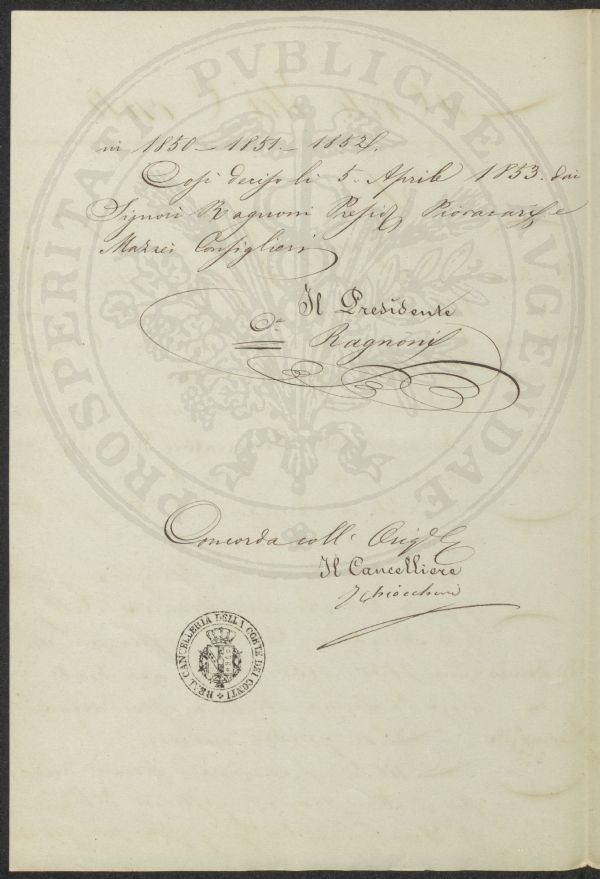 ni 1850 - 1851. - 1852.
Così deciso li 5. Aprile 1853. dai
Signori Ragnoni Presid Piovacari e
Mazzei Consiglieri
Il Presidente
Ragnoni
Concorda coll' Orig
Il Cancelliere
REAL CANCELLERIA DELLA CORTE DEI CONTI
PROSPERITATI PVBLICAE AVGENDAE